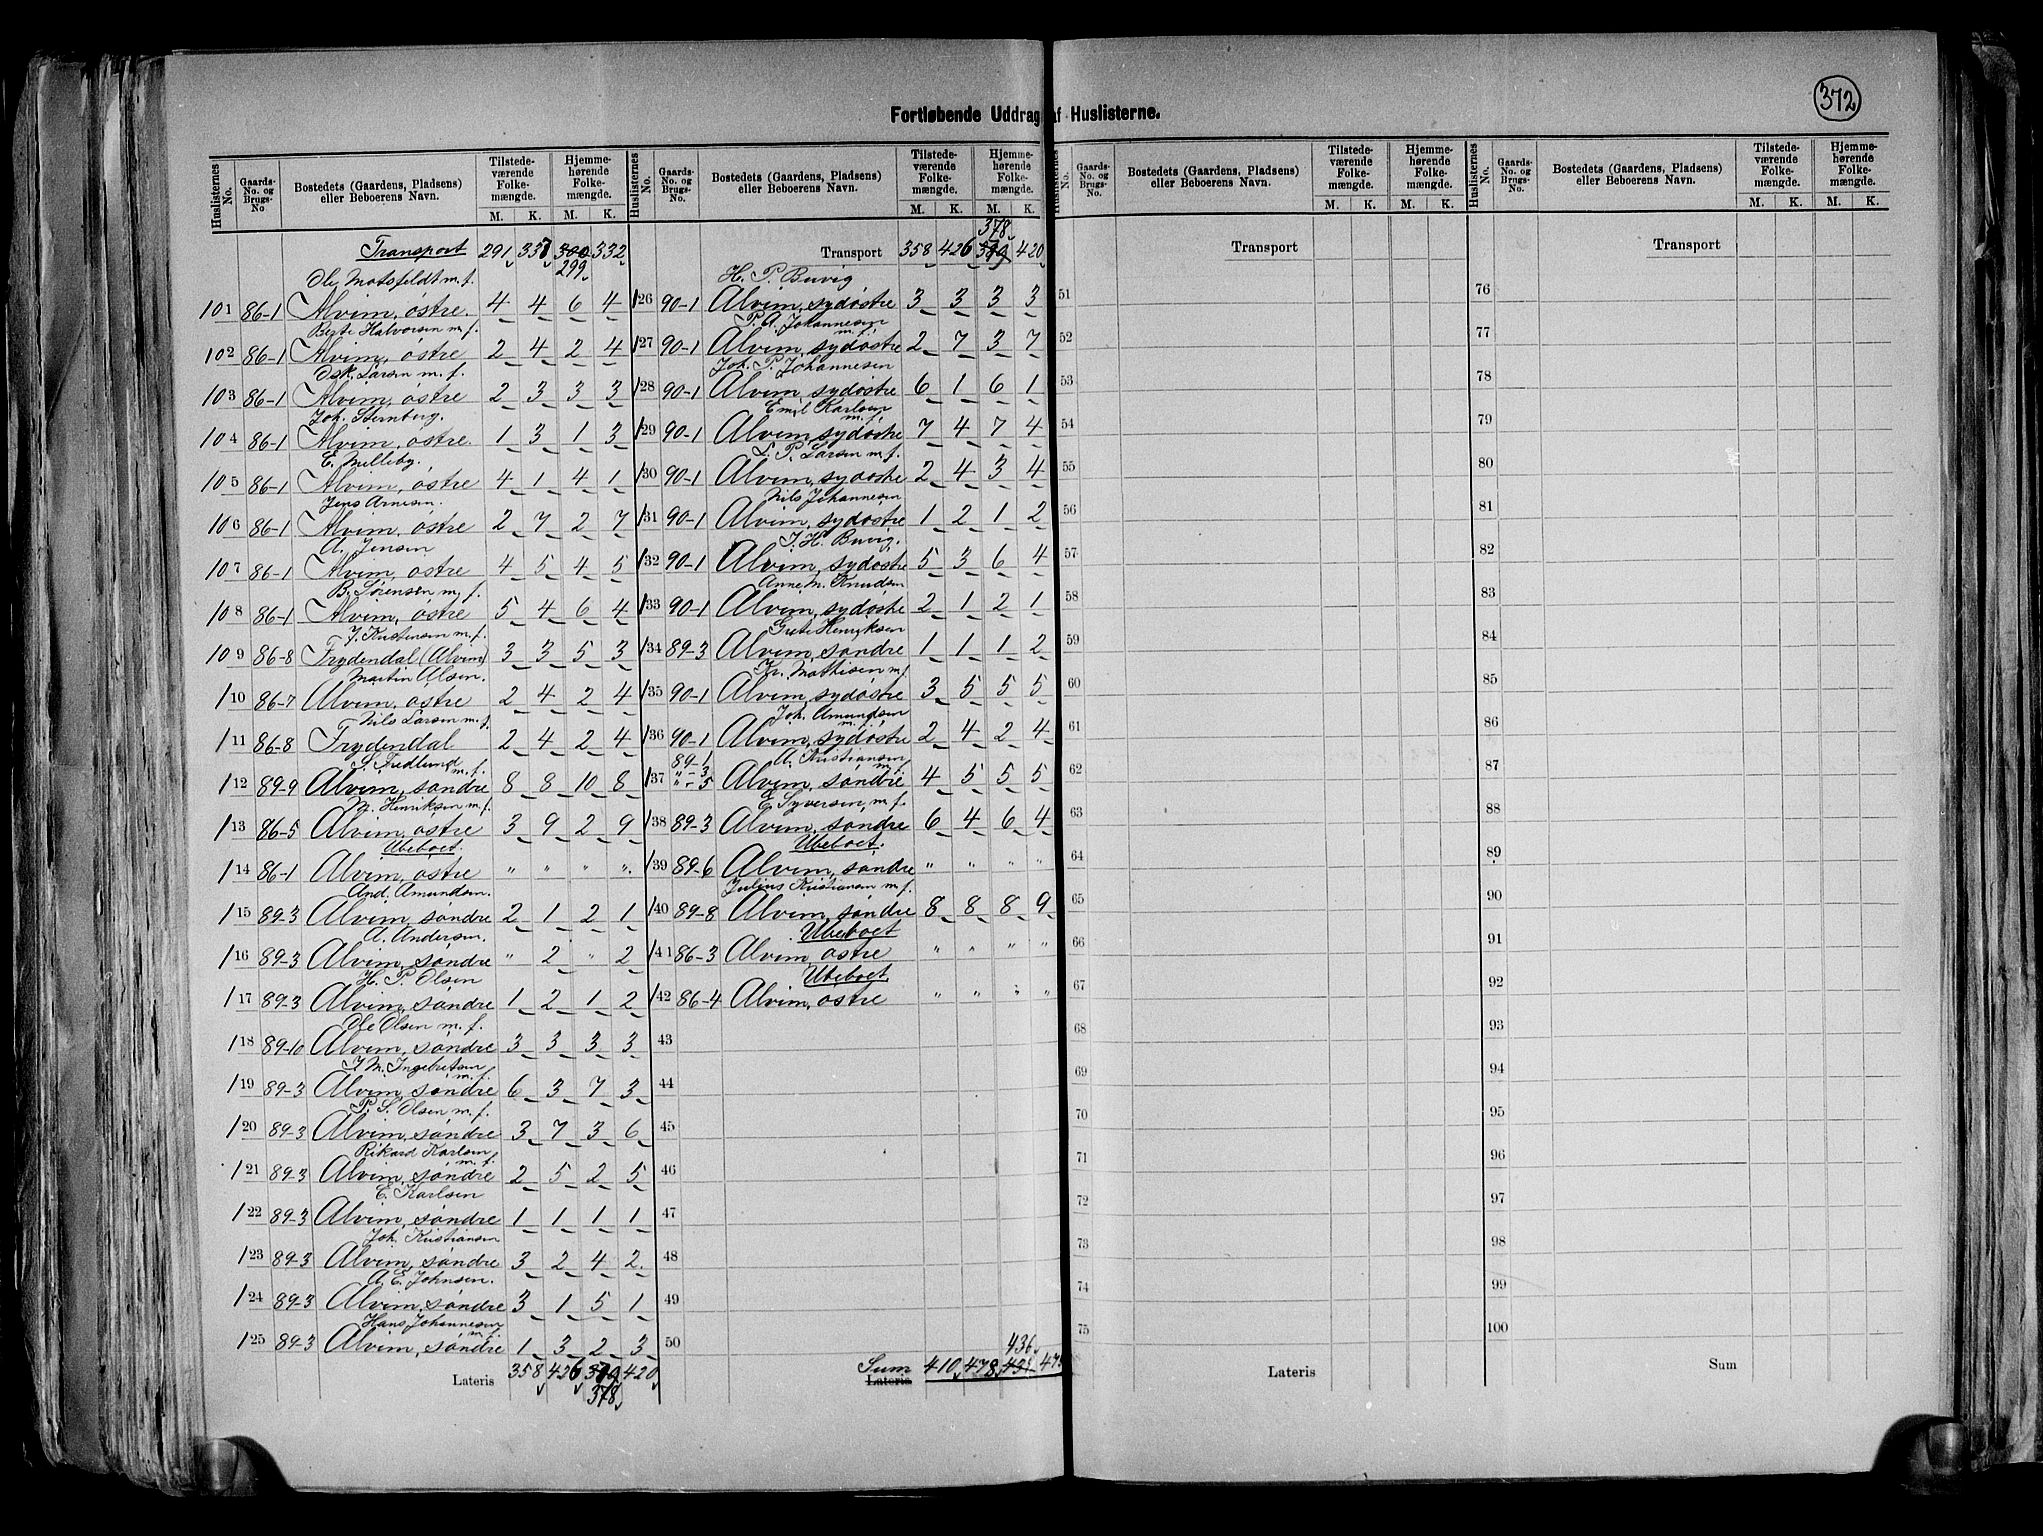 372
Fortløbende Uddrag af Huslisterne.
Huslisternes No. Gaards-No. og Brugs-No. Bostedets (Gaardens, Pladsens) eller Beboerens Navn. Tilstedeværende Folkemængde. M. K. Hjemmehørende Folkemængde. M. K.
Transport 291 337 300 332
299
Ole Matsfeldt m. f.
101 86-1 Alvim, östre. 4 4 6 4
Berte Halvorsen m. f.
102 86-1 Alvim, östre 2 4 2 4
Osk. Larsen m. f.
103 86-1 Alvim, östre 2 3 3 3
Joh. Sternberg.
104 86-1 Alvim, östre 1 3 1 3
E. Melleby.
105 86-1 Alvim, östre 4 1 4 1
Jens Arnesen.
106 86-1 Alvim, östre 2 7 2 7
A. Jensen
107 86-1 Alvim, östre 4 5 4 5
B. Sörensen m. f.
108 86-1 Alvim, östre 5 4 6 4
J. Kristensen m. f.
109 86-8 Frydendal (Alvim) 3 3 5 3
Martin Olsen.
110 86-7 Alvim, östre 2 4 2 4
Nils Larsen m. f.
111 86-8 Frydendal 2 4 2 4
S. Fredlund m. f.
112 89-9 Alvim, söndre 8 8 10 8
M. Henriksen m. f.
113 86-5 Alvim, östre 3 9 2 9
Ubeboet.
114 86-1 Alvim, östre " " " "
And. Amundsen.
115 89-3 Alvim, söndre 2 1 2 1
A. Andersen.
116 89-3 Alvim, söndre " 2 " 2
H. P. Olsen
117 89-3 Alvim, söndre 1 2 1 2
Ole Olsen m. f.
118 89-10 Alvim, söndre 3 3 3 3
J. M. Ingebretsen m. f.
119 89-3 Alvim, söndre 6 3 7 3
P. S. Olsen m. f.
120 89-3 Alvim, söndre 3 7 3 6
Rikard Karlsen m. f.
121 89-3 Alvim, söndre 2 5 2 5
E. Karlsen
122 89-3 Alvim, söndre 1 1 1 1
Joh. Kristiansen
123 89-3 Alvim, söndre 3 2 4 2
A. E. Johnsen.
124 89-3 Alvim, söndre 3 1 5 1
Hans Johannesen m. f.
125 89-3 Alvim, söndre 1 3 2 3
Lateris 358 426 379 420
378
Huslisternes No. Gaards-No. og Brugs-No. Bostedets (Gaardens, Pladsens) eller Beboerens Navn. Tilstedeværende Folkemængde. M. K. Hjemmehørende Folkemængde. M. K.
378
Transport 358 426 379 420
H. P. Buvig
126 90-1 Alvim, sydöstre 3 3 3 3
P. A. Johannesen m. f.
127 90-1 Alvim, sydöstre 2 7 3 7
Joh. P. Johannesen
128 90-1 Alvim, sydöstre 6 1 6 1
Emil Karlsen m. f.
129 90-1 Alvim, sydöstre 7 4 7 4
L. P. Larsen m. f.
130 90-1 Alvim, sydöstre 2 4 3 4
Nils Johannesen
131 90-1 Alvim, sydöstre 1 2 1 2
J. H. Buvig.
132 90-1 Alvim, sydöstre 5 3 6 4
Anne M. Knudsen
133 90-1 Alvim, sydöstre 2 1 2 1
Grete Henriksen
134 89-3 Alvim, söndre 1 1 1 2
Kr. Mathisen m. f.
135 90-1 Alvim, sydöstre 3 5 5 5
Joh. Amundsen m. f.
136 90-1 Alvim, sydöstre 2 4 2 4
89-1 A. Kristiansen m. f.
137 "-3 "-5 Alvim, söndre 4 5 5 5
E. Syversen m. f.
138 89-3 Alvim, söndre 6 4 6 4
Ubeboet.
139 89-6 Alvim, söndre " " " "
Julius Kristiansen m. f.
140 89-8 Alvim, söndre 8 8 8 9
Ubeboet
141 86-3 Alvim östre " " " "
Ubeboet
142 86-4 Alvim, östre " " " "
43
44
45
46
47
48
49
50
436
Sum Lateris 410 478
Huslisternes No. Gaards-No. og Brugs-No. Bostedets (Gaardens, Pladsens) eller Beboerens Navn. Tilstedeværende Folkemængde. M. K. Hjemmehørende Folkemængde. M. K.
Transport
51
52
53
54
55
56
57
58
59
60
61
62
63
64
65
66
67
68
69
70
71
72
73
74
75
Lateris
Huslisternes No. Gaards-No. og Brugs-No. Bostedets (Gaardens, Pladsens) eller Beboerens Navn. Tilstedeværende Folkemængde. M. K. Hjemmehørende Folkemængde. M. K.
Transport
76
77
78
79
80
81
82
83
84
85
86
87
88
89
90
91
92
93
94
95
96
97
98
99
100
Sum